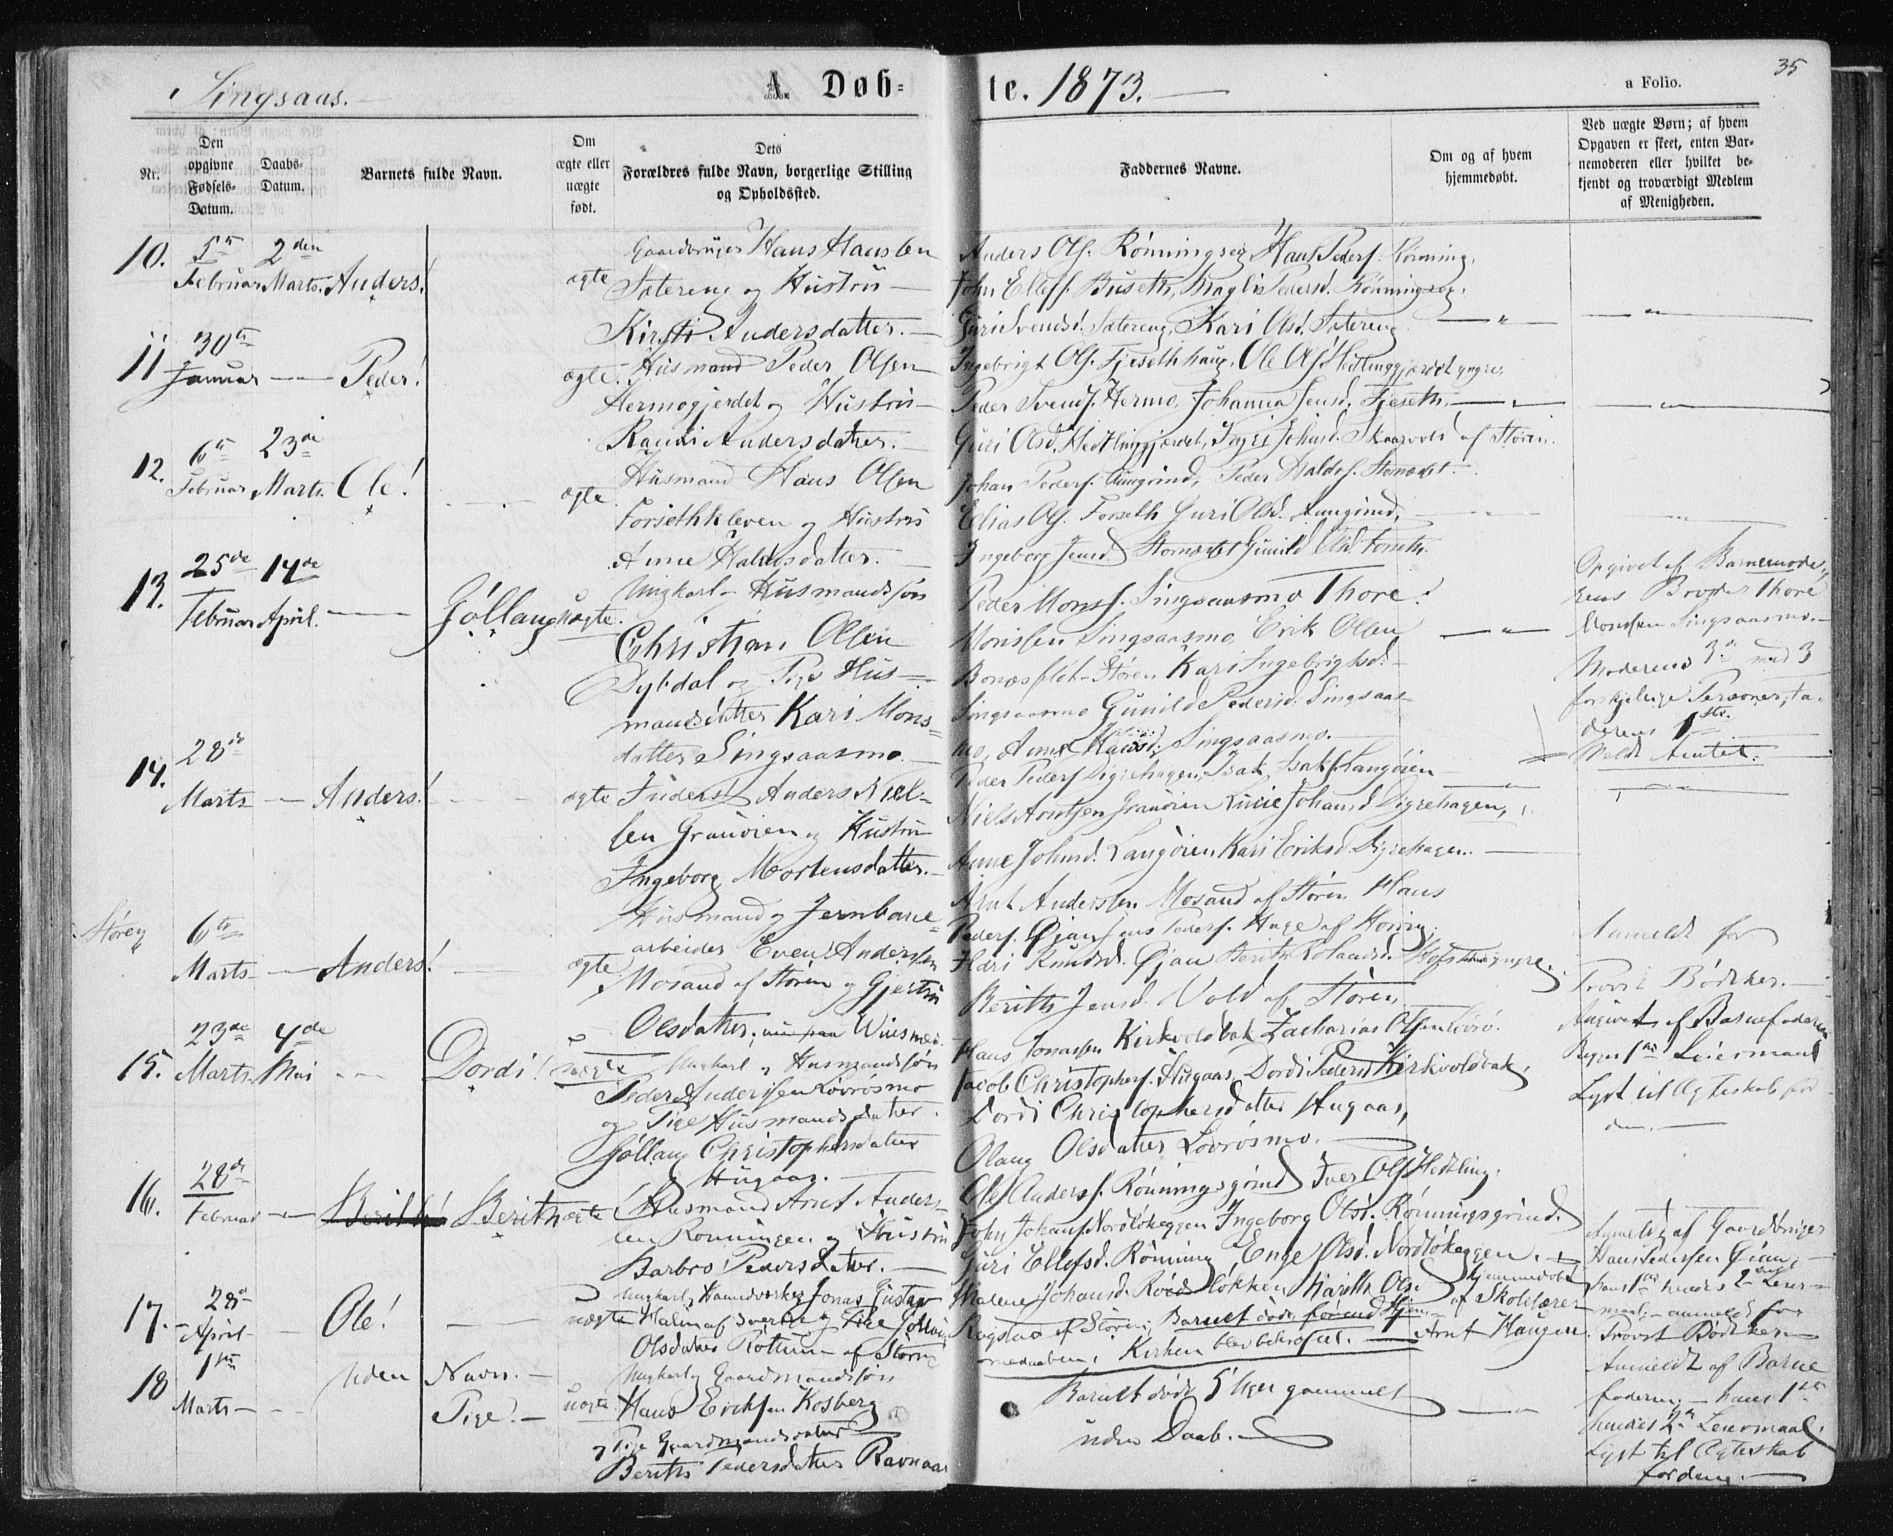 Singsaas.
A. Døb-
te. 1873.
a Folio.
35
Nr.
Den opgivne Fødsels-Datum.
Daabs-Datum.
Barnets fulde Navn.
Om ægte eller uægte født.
Dets Forældres fulde Navn, borgerlige Stilling og Opholdssted.
Faddernes Navne.
Om og af hvem hjemmedøbt.
Ved uægte Børn; af hvem Opgaven er skeet, enten Barnemoderen eller hvilket bekjendt og troværdigt Medlem af Menigheden.
10.
Februar
2den
Marts.
Anders!
ægte
Gaardbruger Hans Hansen
Sætereng og Hustru
Kirsti Andersdatter.
Anders Ols. Rønningseg, Hans Peders. Rønning,
John Ellefs. Buseth, Magli Pedersd. Rønningseg.
Guri Svendsd. Sætereng, Kari Olsd. Sætereng
11
30te
Januar
Peder!
ægte.
Husmand Peder Olsen
Hermogjerdet og Hustru
Randi Andersdatter.
Ingebrigt Ols. Fjesethhaug, Ole Ols. Hedlinggjærdet yngre,
Peder Svends. Hermo, Johanna Jensd. Fjeseth.
Guri Olsd. Hedlinggjærdet, af Støren.
12.
6te
Februar
23de
Marts.
Ole!
ægte
Husmand Hans Olsen
Forsethkleven og Hustru
Anne Haldosdatter.
Johan Peders. Aungrind, Peder Haldos.
Elias Ols. Forseth Guri Olsd. Aungrind,
Ingeborg Jensd. Gunild Olsd. Forseth.
13.
25de
Februar
14de
April.
Jøllaug
uægte.
Ungkarl Husmandssøn
Christian Olsen
Dybdal og Pige Hus-
mandsdatter Kari Mons-
datter Singsaasmo.
Peder Monss. Singsaasmo Thore
Monssen Singsaasmo, Erik Olsen
Støren Kari Ingebrigtsd.
Singsaasmo Gunild Pedersd. Singsaas-
mo, Anne Singsaasmo.
Opgivet af Barnemode-
rens Broder Thore
Monssen Singsaasmo.
Moderens 3die med 3
forskjellige Personer, fa-
derens 1ste.
Meldt Amtet.
14.
28de
Marts
Anders!
ægte
Inderst Anders Niel-
sen Granøien og Hustru
Ingeborg Mortensdatter.
Peder Peders. Digrehagen, Isak Isaks. Langøien
Niels Arntsen Granøien Johansd. Digrehagen,
Anne Johnsd. Langøien Kari Eriksd. Digrehagen.
Støren
6te
Marts
Anders!
ægte
Husmand og Jernbane-
arbeider Even Andersen
Mosand af Støren og Gjertru
Olsdatter,
Arnt Andersen Mosand af Støren Hans
Peders. Øjan Jens Peders. Hage af Horrig,
Øjan Berith
Berith Jensd. Vold af Støren
Anmeldt for
Provst Bødtker.
15.
23de
Marts
4de
Mai
Dordi!
uægte
Ungkarl og Husmandssøn
Peder Andersen Løvrøsmo
og Pige Husmandsdatter
Jøllaug Christophersdatter
Hugaas.
Hans Jonassen Kirkvoldbak Zacharias Olsen
Jacob Christophers. Hugaas, Dordi Pedersd. Kirkvoldbak,
Dordi Christophersdatter Hugaas,
Olaug Olsdatter Løvrøsmo.
Angivet af Barnefaderen
Begges 1ste Leiermaal
Lyst til Ægteskab for
dem.
16.
28de
Februar
Berith
ægte
Husmand Arnt Anders-
sen Rønningen og Hustru
Barbro Pedersdatter.
Ole Anderss. Rønningsgrind Iver Ols. Hedling.
John Johans. Nordløkeggen Ingeborg Olsd. Rønningsgrind.
Guri Ellefsd. Rønning, Enge Olsd. Nordløkeggen.
17.
28de
April
Ole!
uægte
Ungkarl, Haandværker Jonas Gustav
Halm af Sverrig Pige
Olsdatter Rotum af Støren
Malene Johansd. Berith Olsd.
Rogstad af Støren. Barnet døde førend Hjem-
medaaben i Kirken blev bekræftet.
Hjemmedøbt
af Skolelærer
Arnt Haugen.
Anmeldt af Gaardbruger
Hans Pedersen Øian,
hans 1ste hendes 2det Leier-
maal, anmeldt for
Provst Bødtker
18
1ste
Marts
Uden Navn.
Pige.
uægte
Ungkarl og Gaardmandssøn
Hans Eriksen Kosberg
og Pige Gaardmandsdatter
Berith Pedersdatter Ravnaas
Barnet døde 5 Uger gammelt
uden Daab.
Anmeldt af Barne
faderen, hans 1ste
hendes 2det Leiermaal.
Lyst til Ægteskab
for dem.